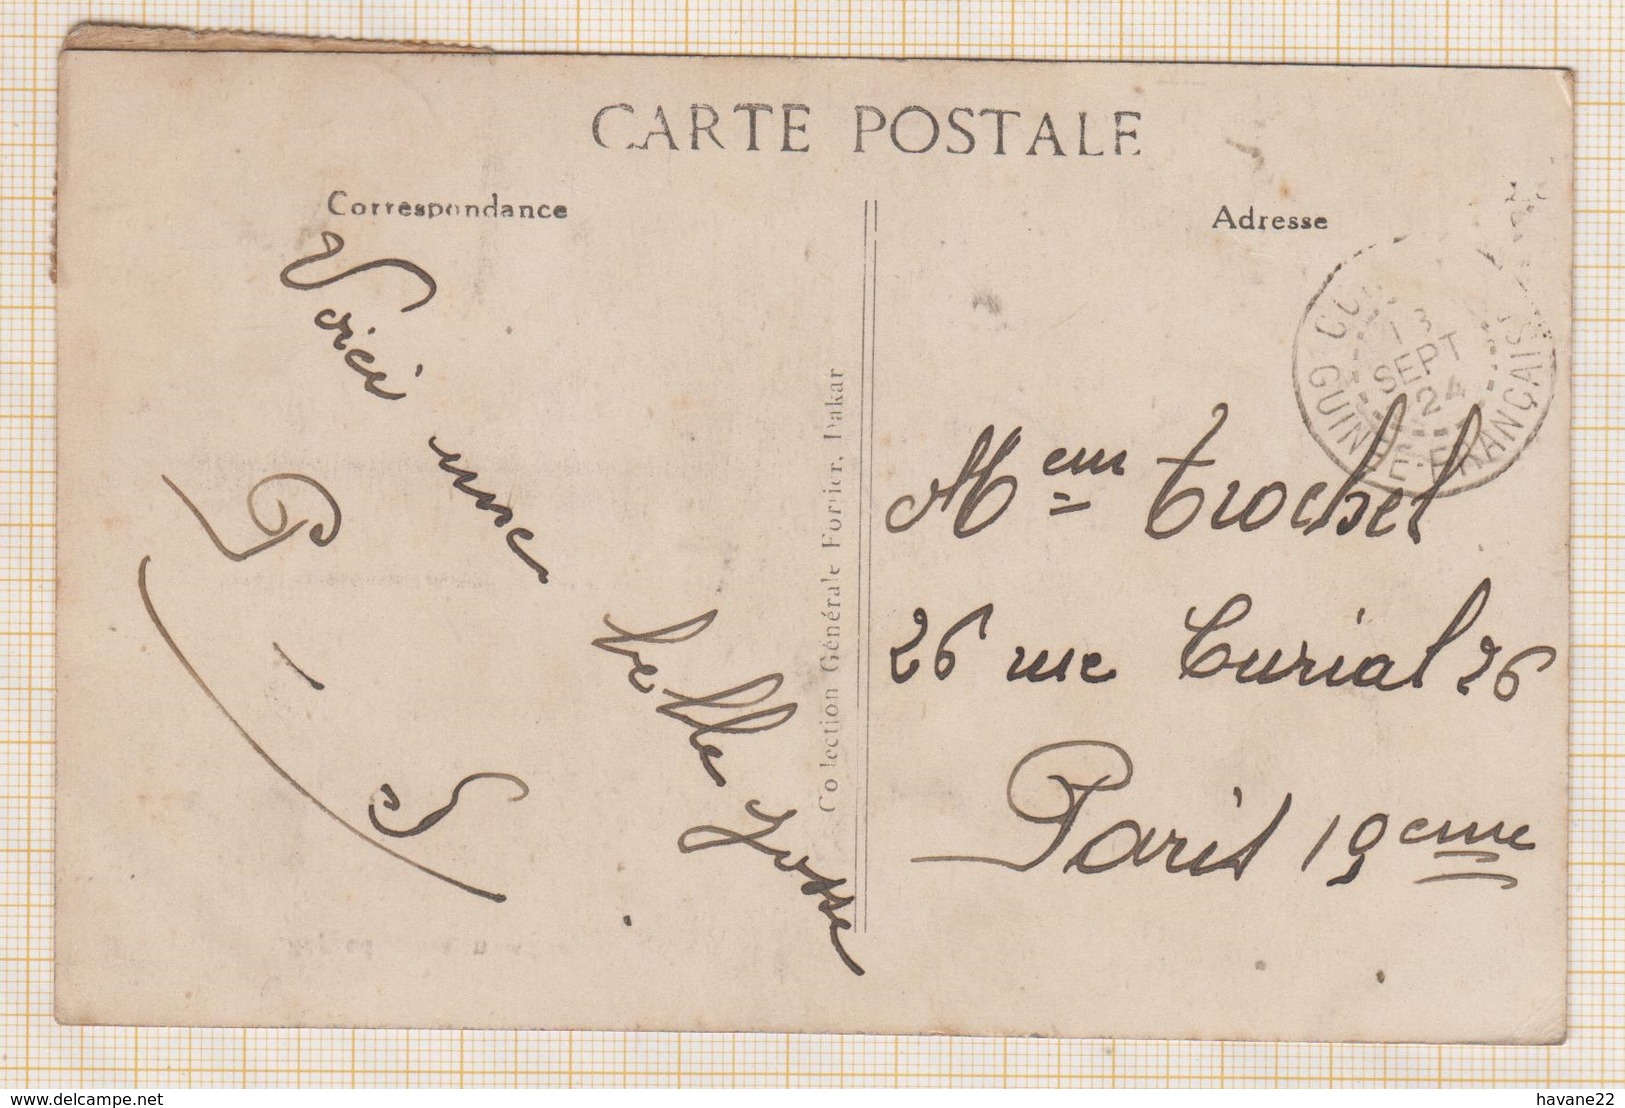 CARTE POSTALE
Correspondance
Adresse
Voici une belle gosse
Collection Générale Fortier, Dakar
13
SEPT
24
GUINÉE FRANÇAISE
Mem Trochel
26 rue Curial 26
Paris 19eme
delcampe.net
havane22